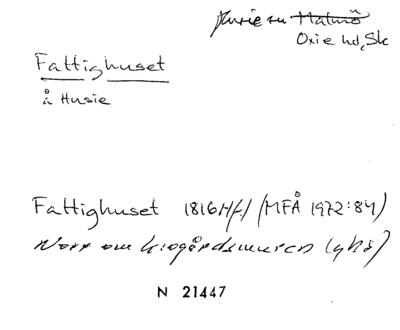 Husie sn ~~Malmö~~
Oxie hd, Sk
Fattighuset
å Husie
Fattighuset 1816 Hfl (MFÅ 1972:84)
Norr om kiogårdsmuren (ghs)
N 21447